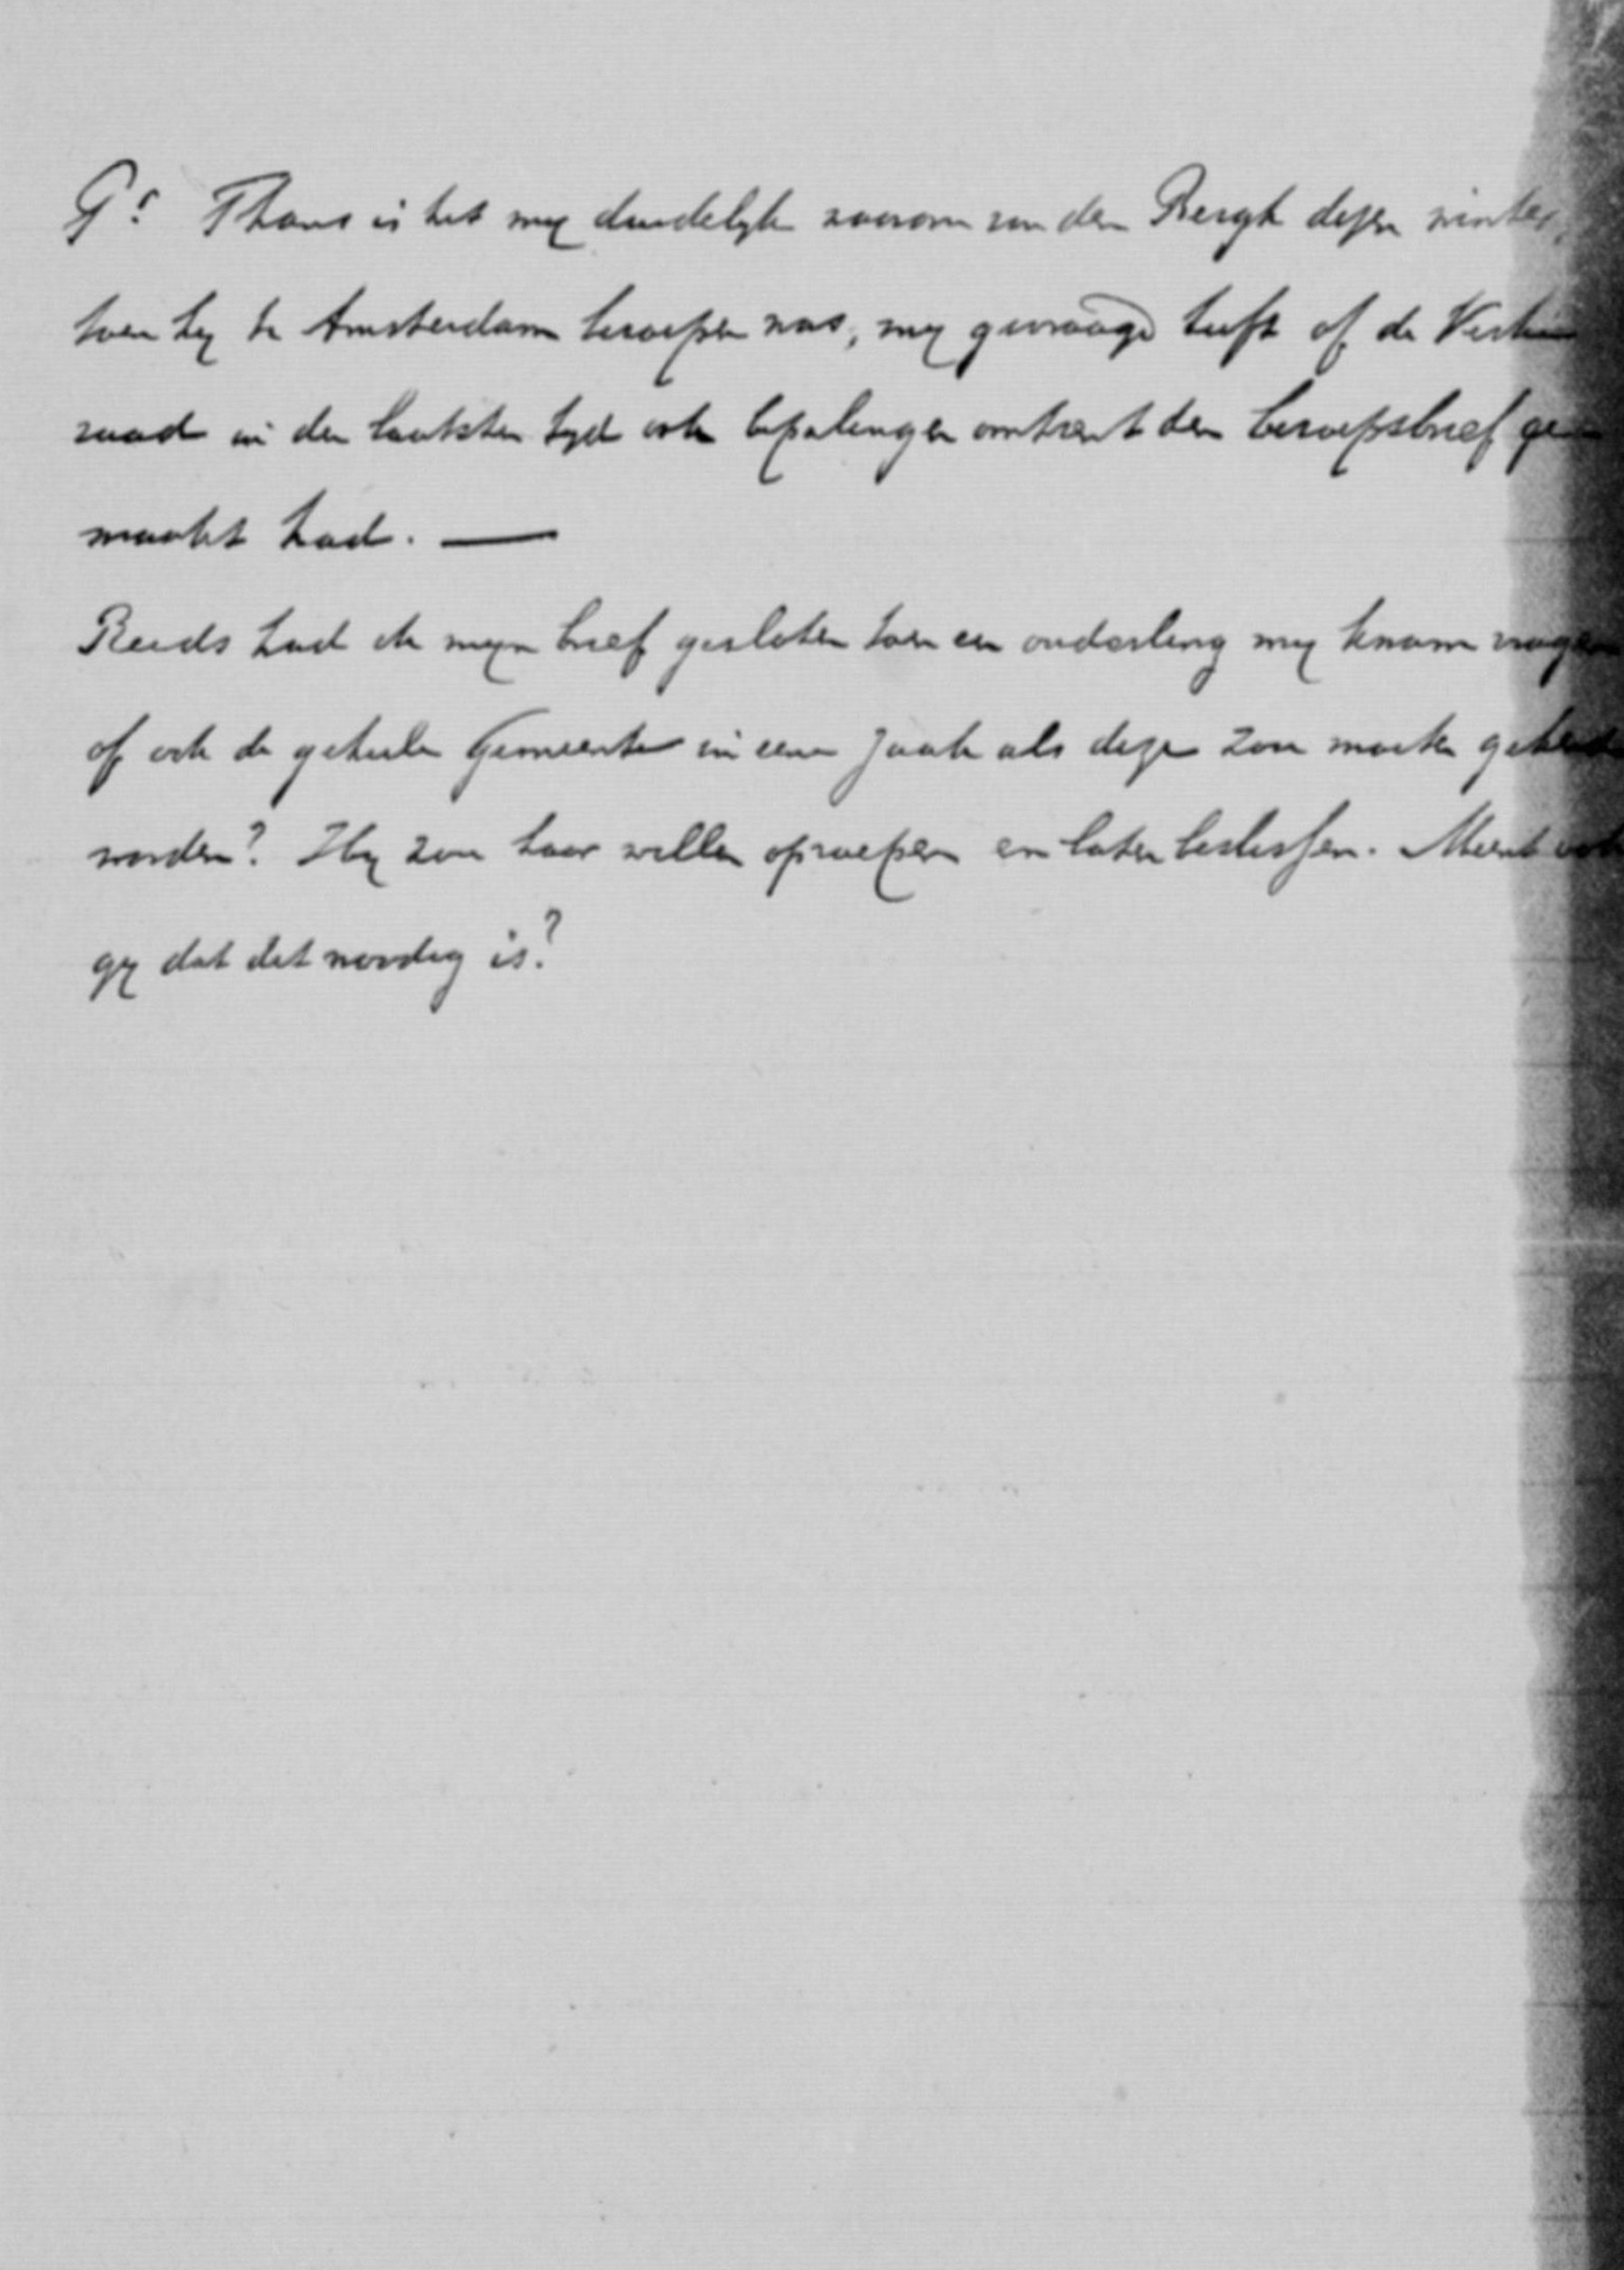 Gs. Thans is het my duidelyk waarom van den Bergh dezen winter,
toen hy te Amsterdam beroepen was, my gevraagd heeft of de Kerke
raad in den laatsten tyd ook bepalingen omtrent den beroepsbrief ge
maakt had. —
Reeds had ik myn brief gesloten toen een ouderling my kwam vragen
of ook de geheele Gemeente in eene zaak als deze zou moeten gehoord
worden? Hy zou haar willen oproepen en laten beslissen. Meent ook
gy dat dat noodig is?